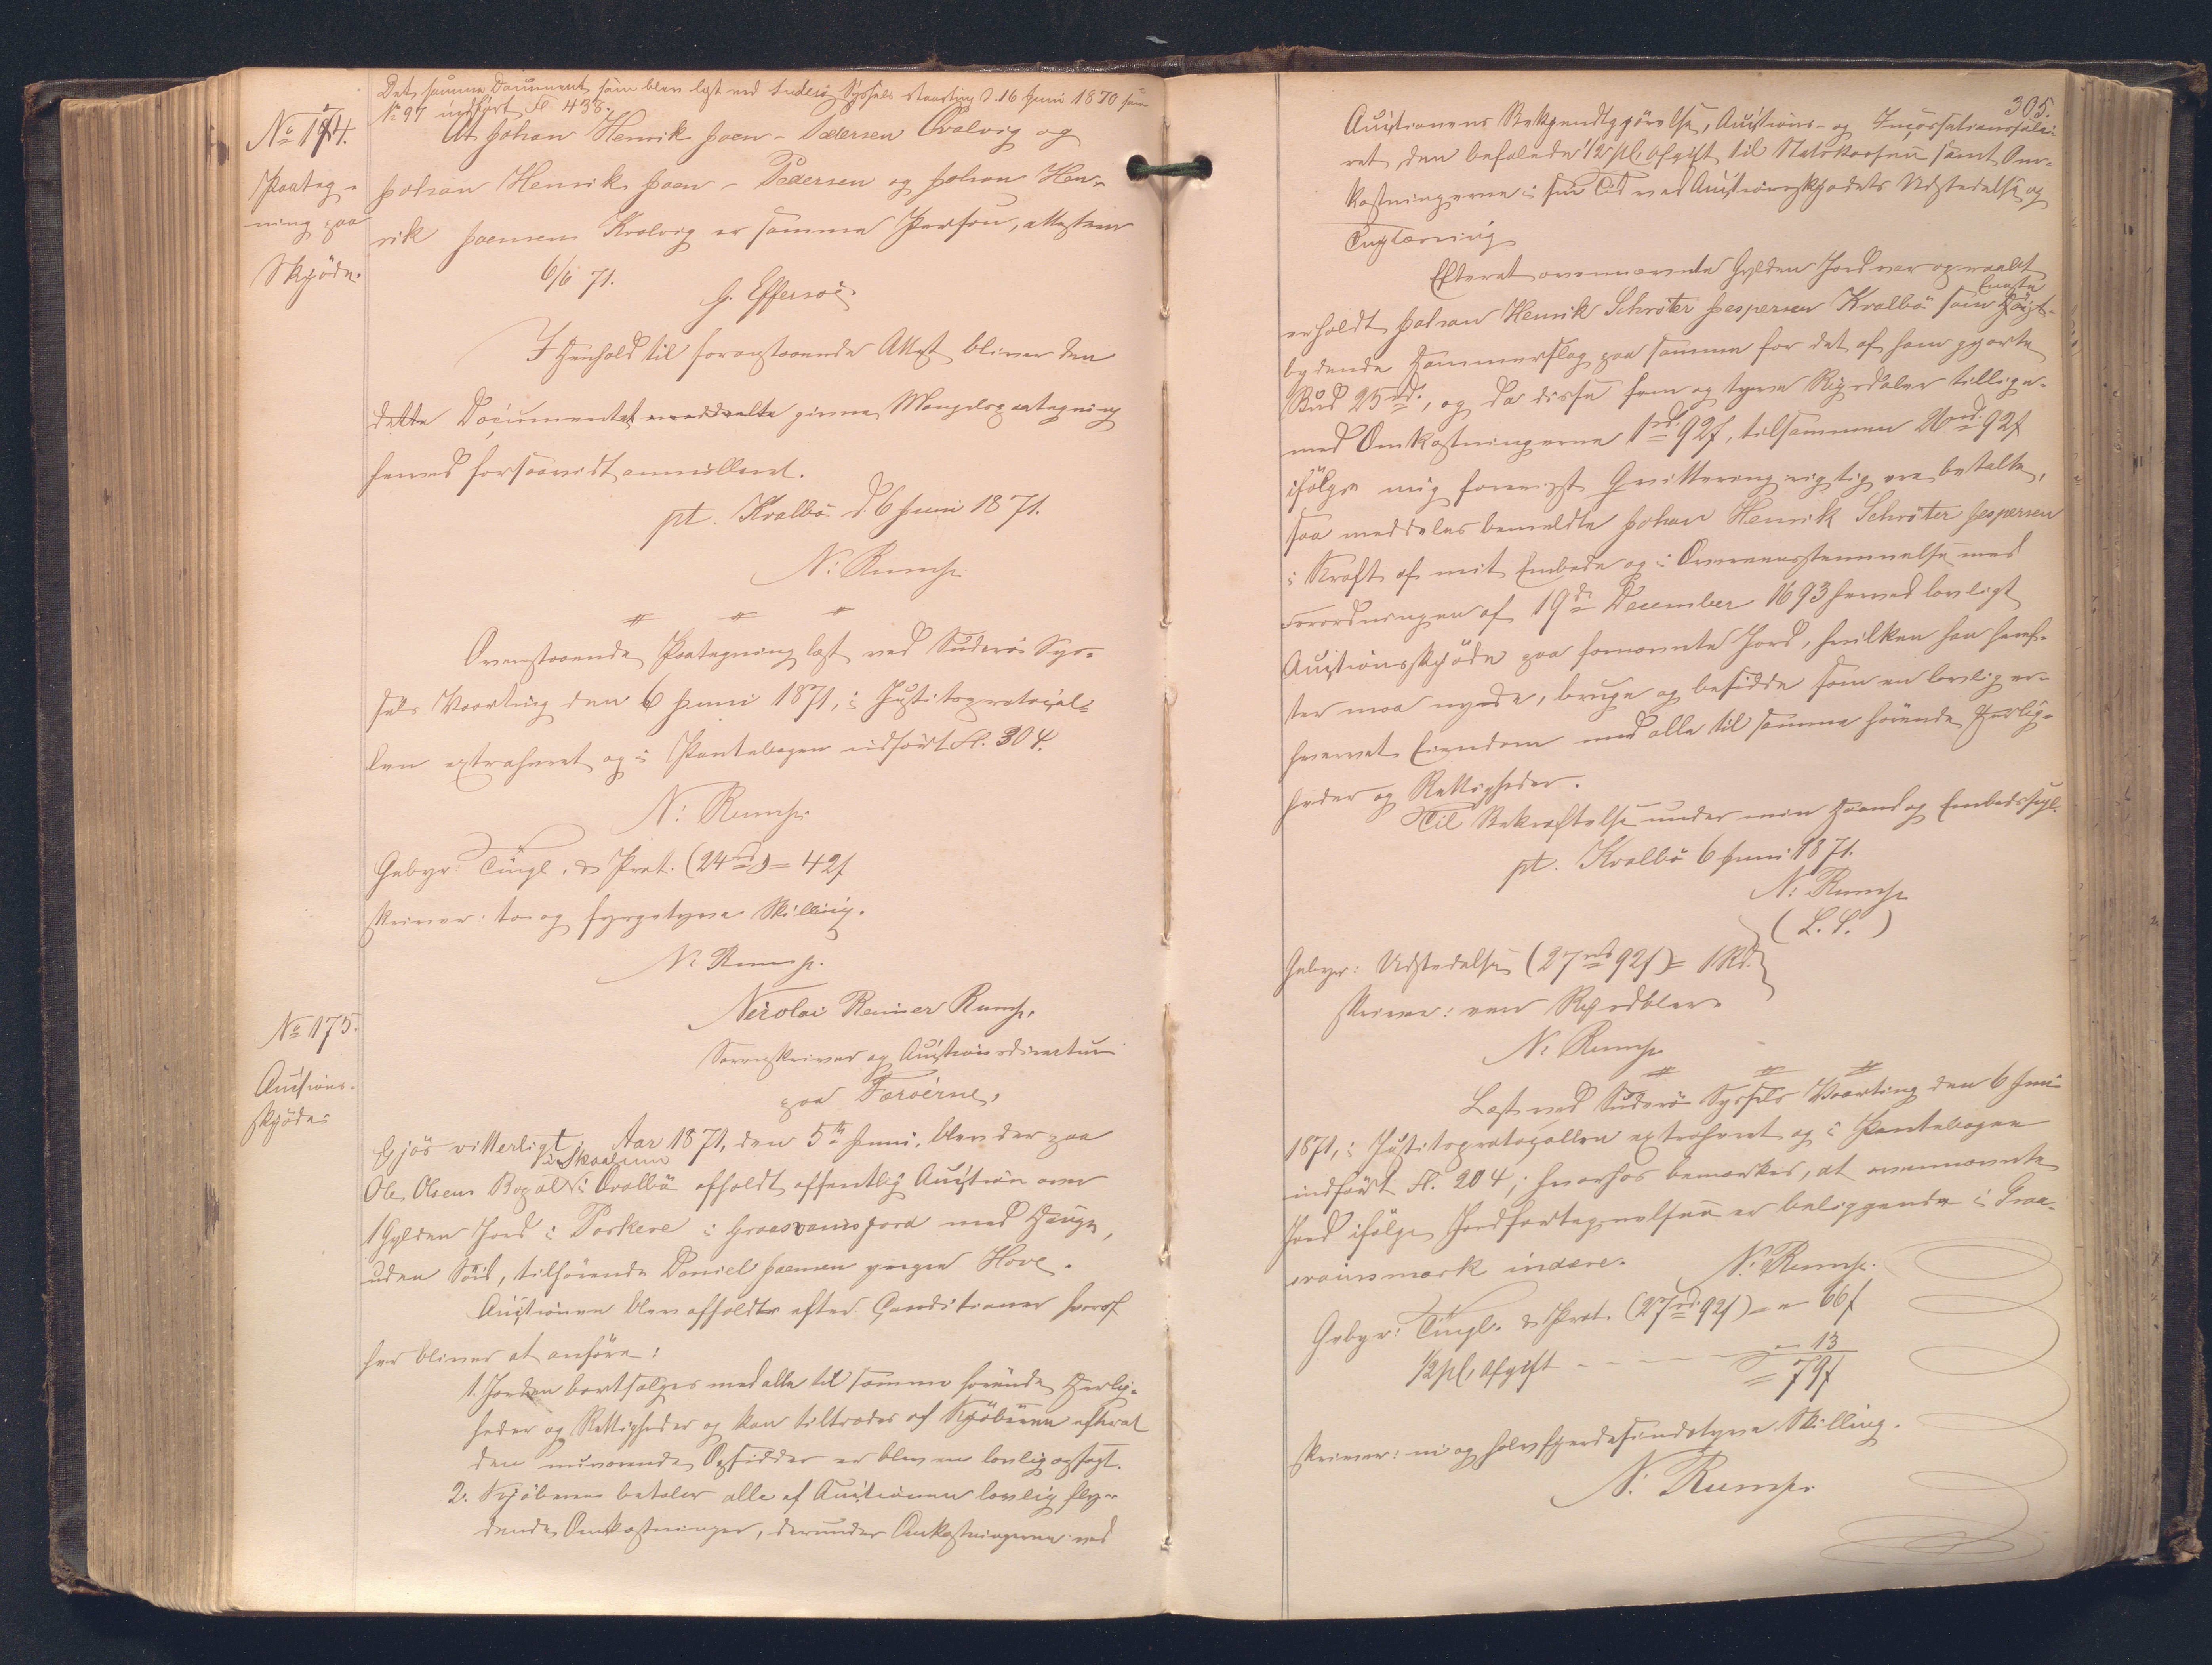 Det samme Document, som blev læst ved Suderö Syssels Vaarting d. 16 Juni 1870 som
No 97 indført Fl 438.
No 174.
Paateg-
ning paa
Skjöde.
At Johan Henrik Joen-Pedersen Qvalvig og
Johan Henrik Joen-Pedersen og Johan Hen-
rik Joensen Kvalvig er samme Person, attesteres
6/6 71.
G. Effersöe.
I Henhold til foranstaaende Attest bliver den
dette Documentet meddeelte givne Mangelspaategning
herved forsaavidt annulleret.
pt. Kvalbö d. 6 Juni 1871.
N: Rump.
Ovenstaaende Paategning læst ved Suderö Sys-
sels Vaarting den 6 Juni 1871, i Justitsprotocol-
len extraheret og i Pantebogen indført Fl. 304.
N: Rump.
Gebyr: Tingl. & Prot. (24 rd) = 42 f
skriver: to og fyrgetyve Skilling.
N: Rump.
No 175.
Auctions-
skjöde
Nicolai Reinier Rump,
Sorenskriver og Auctionsdirecteur
paa Færöerne,
Gjör vitterligt: Aar 1871, den 5te Juni, blev der paa
Ole Olsens Bopæl i Skaalum i Qvalbö afholdt offentlig Auction over
1 Gylden Jord i Porkere i Graasvainsjord med Hauge,
uden Söid, tilhörende Daniel Joensen paa Hove.
Auctionen blev afholdt efter Conditioner hvoraf
her bliver at anföre:
1. Jorden bortsælges med alle til samme hörende Herlig-
heder og Rettigheder og kan tiltrædes af Kjöberen efterat
den nuværende Opsidder er bleven lovlig opsagt.
2. Kjöberen betaler alle af Auctionen lovlig fly-
dende Omkostninger, derunder Omkostningerne ved
305.
Auctionens Bekjendtgjörelse, Auctions- og Incassationssala-
ret, den befalede 1/2 pCt. Afgift til Statskassen samt Om-
kostningerne i sin Tid ved Auctionsskjödets Udstedelse og
Tinglæsning
Efterat ovennævnte Gylden Jord var opraabt
erholdt Johan Henrik Schröter Jespersen Kvalbö som eneste Höist-
bydende Hammerslag paa samme for det af ham gjorte
Bud 25 rd., og da disse fem og tyve Rigsdaler tillige-
med Omkostningerne 1 rd 92 f, tilsammen 26 rd 92 f
ifölge mig foreviist Qvittering rigtig ere betalte,
saa meddeles bemeldte Johan Henrik Schröter Jespersen
i Kraft af mit Embede og i Overensstemmelse med
Forordningen af 19de December 1693 herved lovligt
Auctionsskjöde paa fornævnte Jord, hvilken han heref-
ter maa nyde, bruge og besidde som en lovlig er-
hvervet Eiendom med alle til samme hörende Herlig-
heder og Rettigheder.
Til Bekræftelse under min Haand og Embedssegl.
pt. Kvalbö 6 Juni 1871.
N: Rump
(L. S.)
Gebyr: Udstedelse (27 rd 92 f) = 1 Rd.
skriver: een Rigsdaler.
N: Rump
Læst ved Suderö Syssels Vaarting den 6 Juni
1871, i Justitsprotocollen extraheret og i Pantebogen
indført Fl. 204; hvorhos bemærkes, at ovennævnte
Jord ifölge Jordfortegnelsen er beliggende i Graa-
svainsmark indere.
N: Rump.
Gebyr: Tingl. & Prot. (27 rd. 92 f) = " 66 f
1/2 pCt. Afgift - - - - " 13
= 79 f
skriver: ni og halvfjerdesindstyve Skilling.
N: Rump.